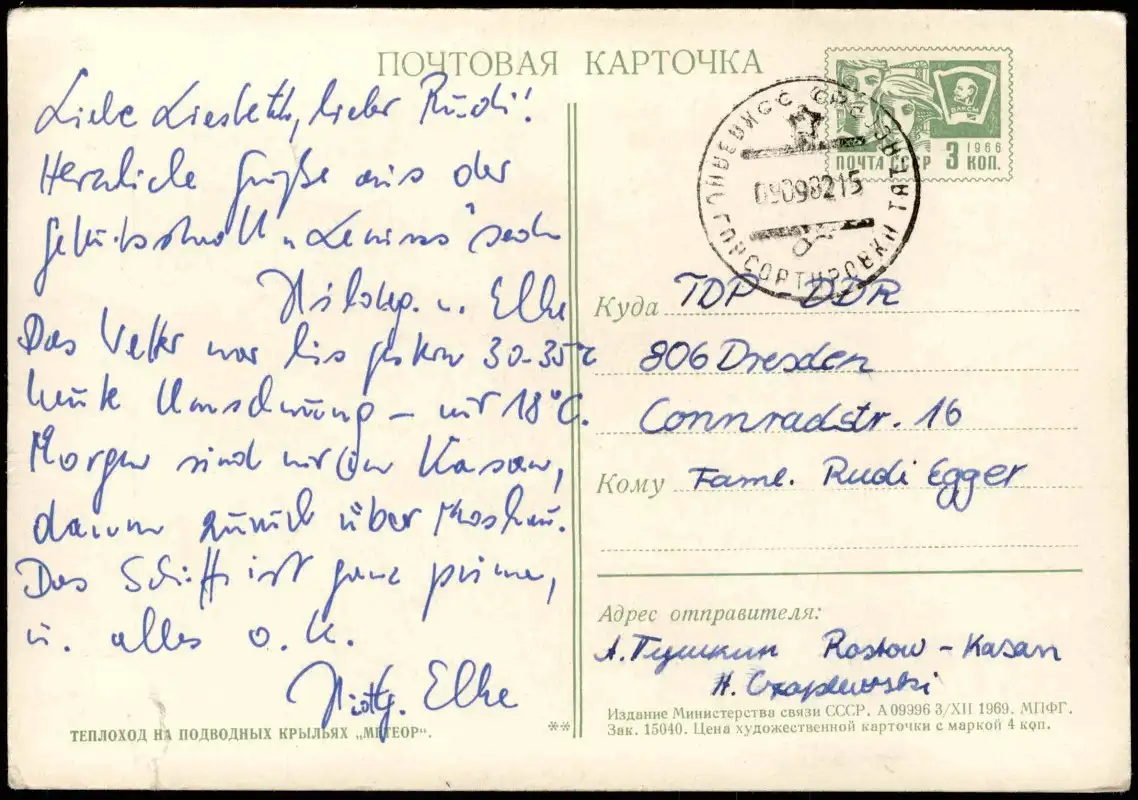 ПОЧТОВАЯ КАРТОЧКА
Liebe Liesbeth, lieber Rudi!
Herzliche Grüße aus der
Geburtsstadt "Lenins" senden
u. Elke
Das Wetter war bis gestern 30-35°C
heute Umschwung – nur 18°C.
Morgen sind wir in Kasan,
dann zurück über Moskau.
Das Schiff ist ganz prima,
u. alles o.k.
Elke
ТЕПЛОХОД НА ПОДВОДНЫХ КРЫЛЬЯХ „МЕТЕОР".
**
ВЛКСМ
1966
ПОЧТА СССР 3 КОП.
Куда TDP DDR
806 Dresden
Connradstr. 16
Кому Faml. Rudi Egger
Адрес отправителя:
А. Пушкин Rostow - Kasan
H. Czaplewski
Издание Министерства связи СССР. А 09996 3/XII 1969. МПФГ.
Зак. 15040. Цена художественной карточки с маркой 4 коп.